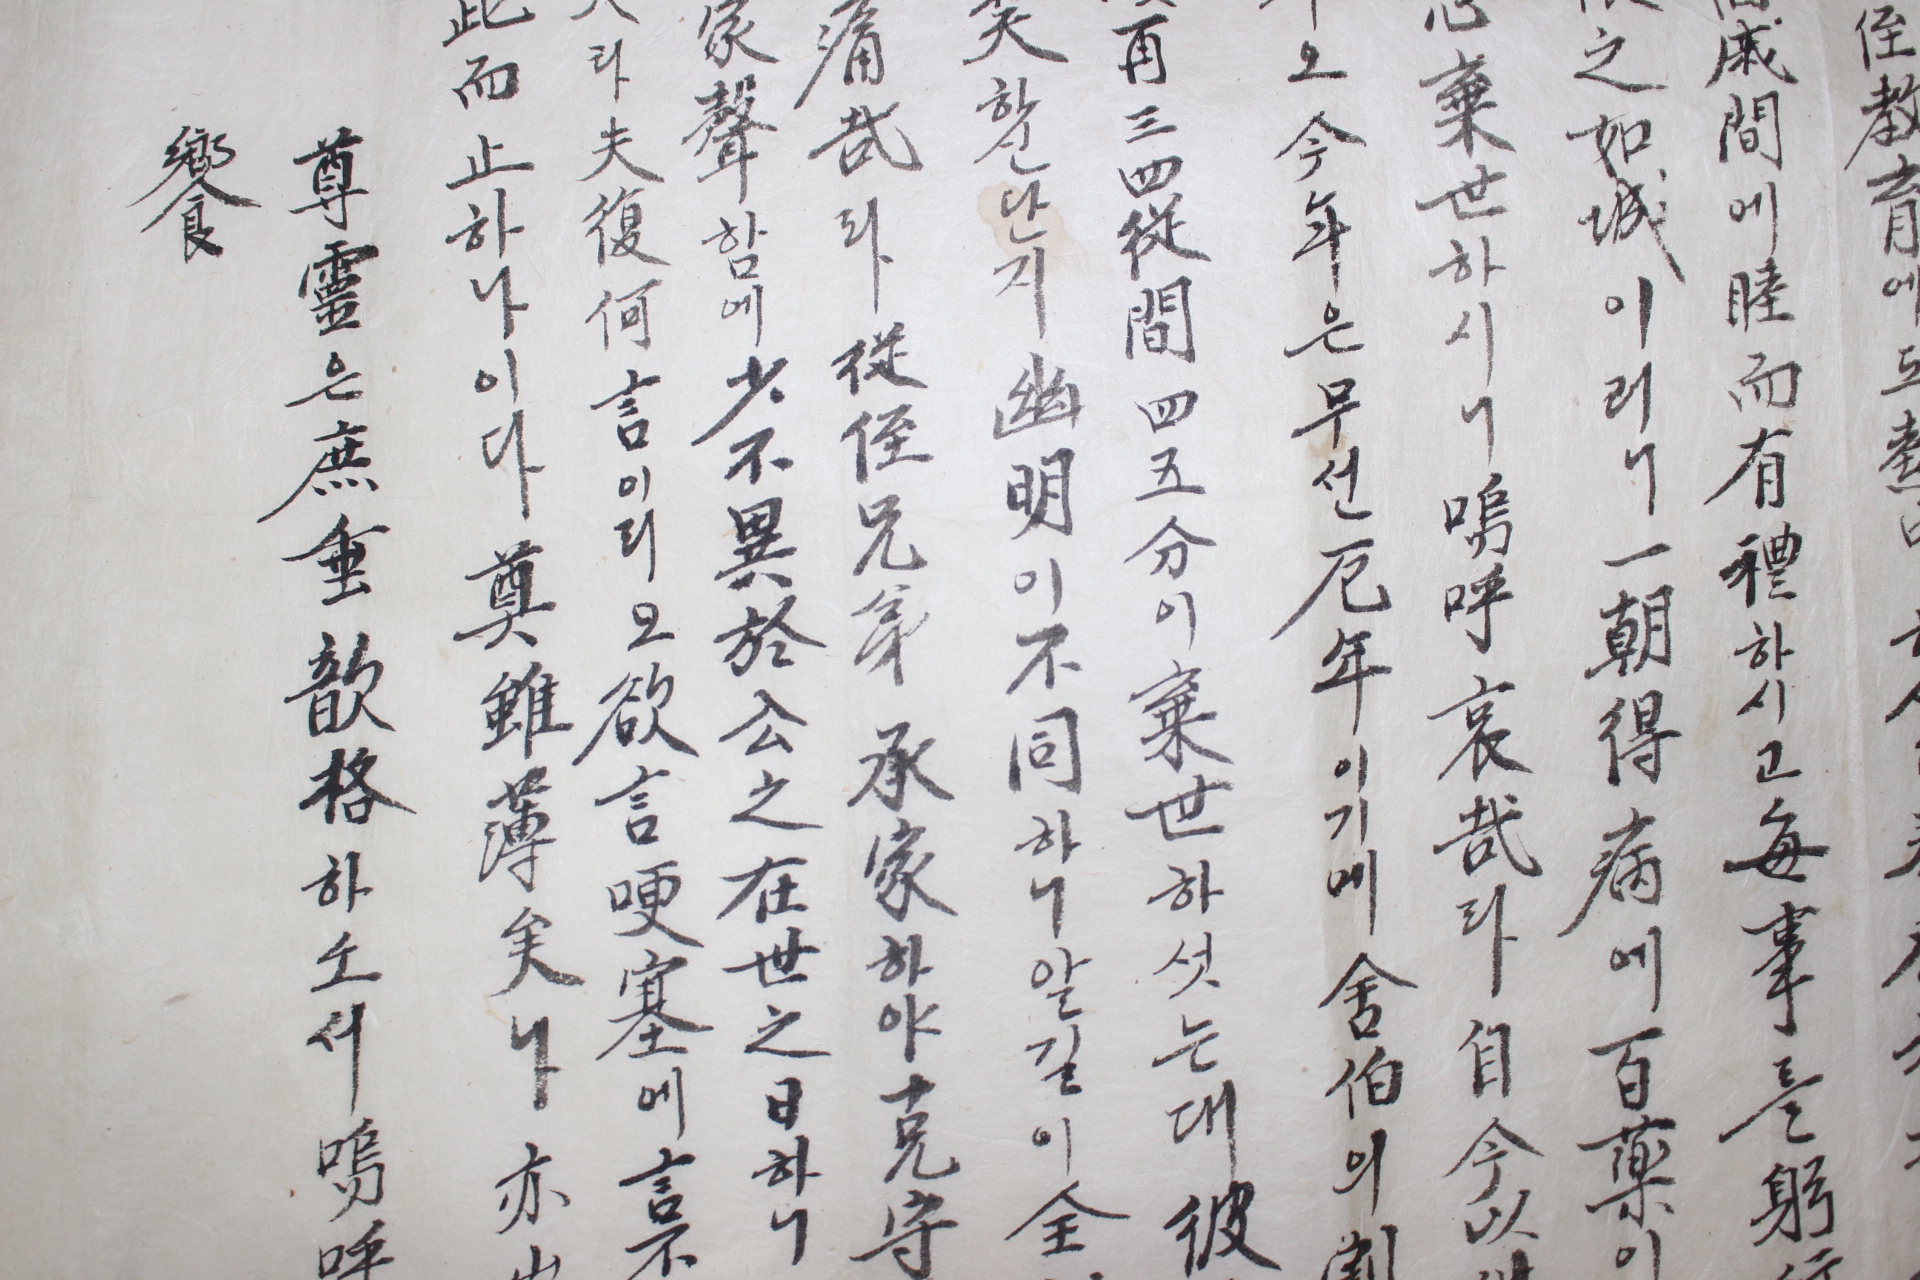 侄教育에도熱
戚間에睦而有禮하시고每事를躬
之如城이러니一朝得病에百藥이
棄世하시니嗚呼哀哉라自今以
오今年은무선厄年이기에舍伯의
再三四從間四五分이棄世하셧는대彼
矣할난지幽明이不同하니알길이全
痛哉라從侄兄弟承家하야克守
家聲함에少不異於公之在世之日하니
라夫復何言이리오欲言哽塞에言不
此而止하나이다奠雖薄矣나亦出
尊靈은庶垂歆格하소서嗚呼
饗